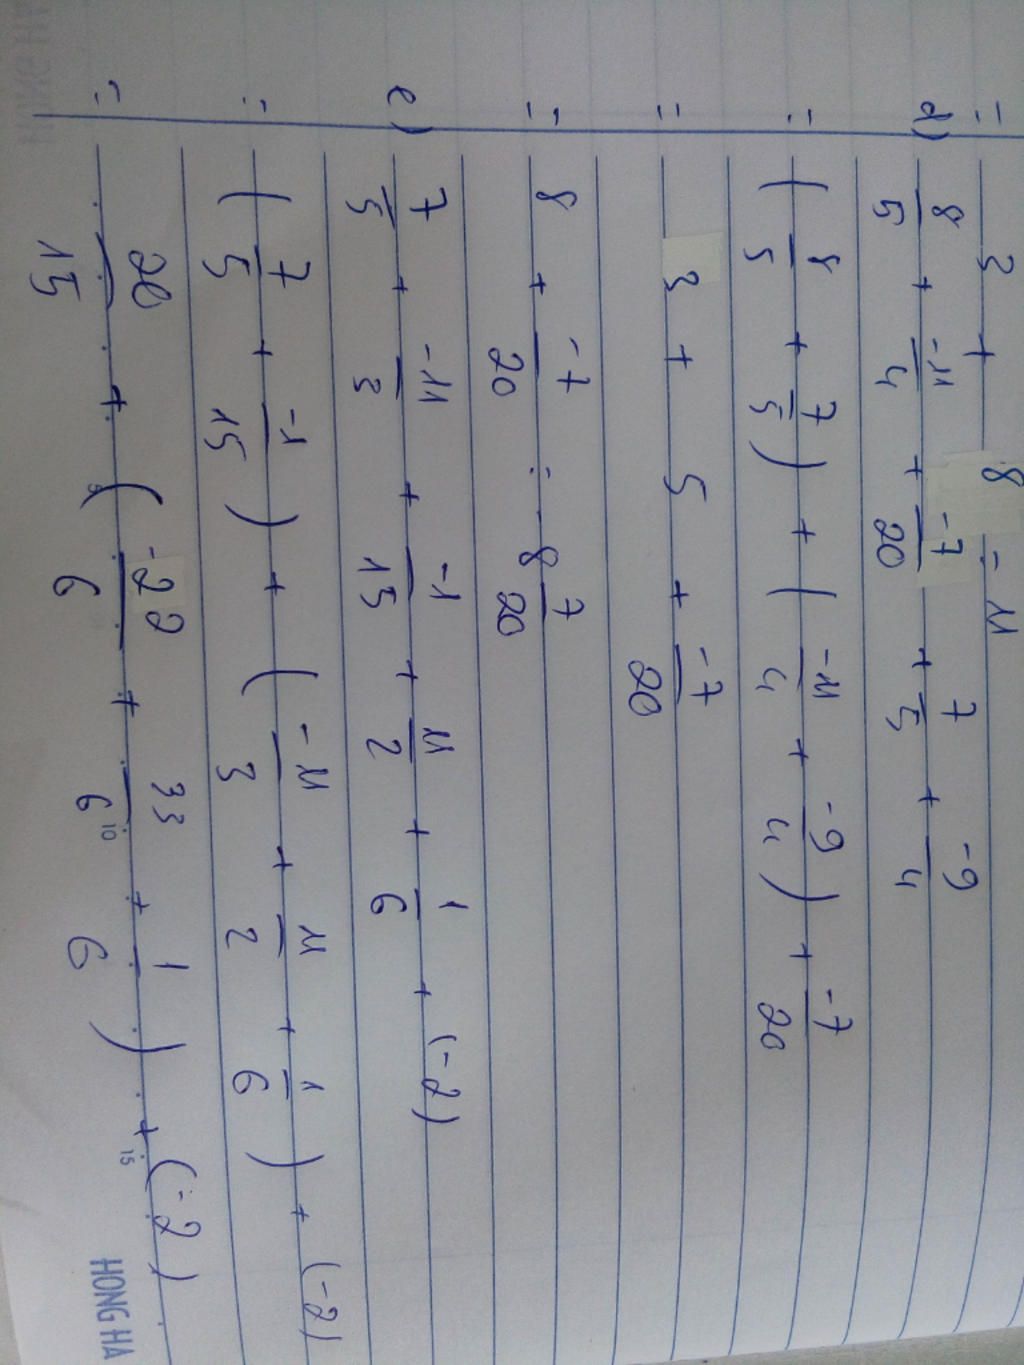 = 3 + 8 = 11
d) 8/5 + -11/4 + -7/20 + 7/5 + -9/4
= (8/5 + 7/5) + (-11/4 + -9/4) + -7/20
= 3 + 5 + -7/20
= 8 + -7/20 = 8 7/20
e) 7/5 + -11/3 + -1/15 + 11/2 + 1/6 + (-2)
= (7/5 + -1/15) + (-11/3 + 11/2 + 1/6) + (-2)
= 20/15 + (-22/6 + 33/6 + 1/6) + (-2)
5 10 15
HONG HA